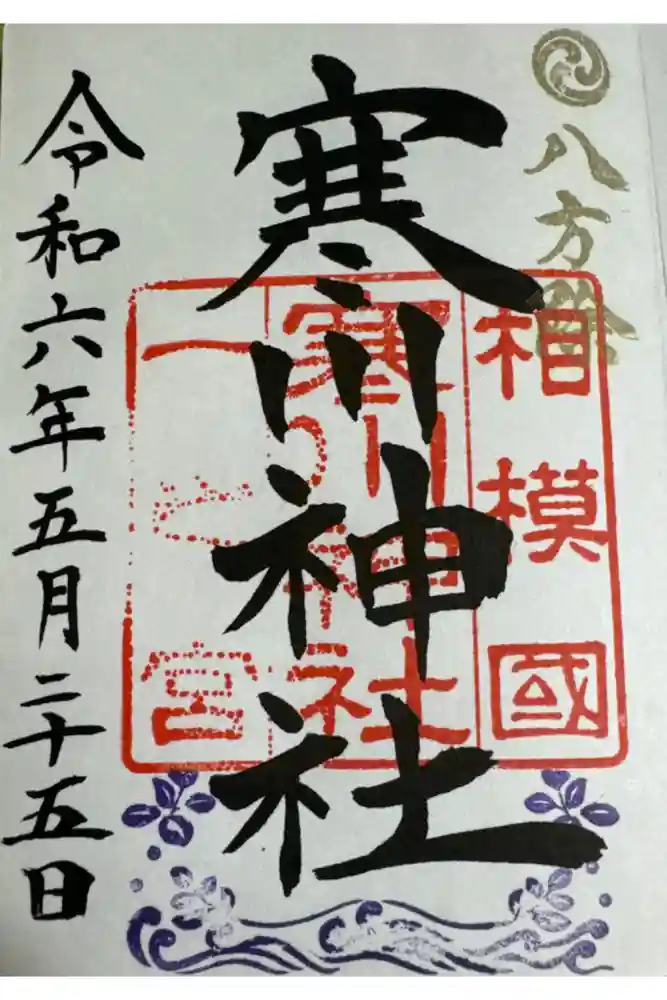 八方除
相模國
寒川神社
一之宮
寒川神社
令和六年五月二十五日